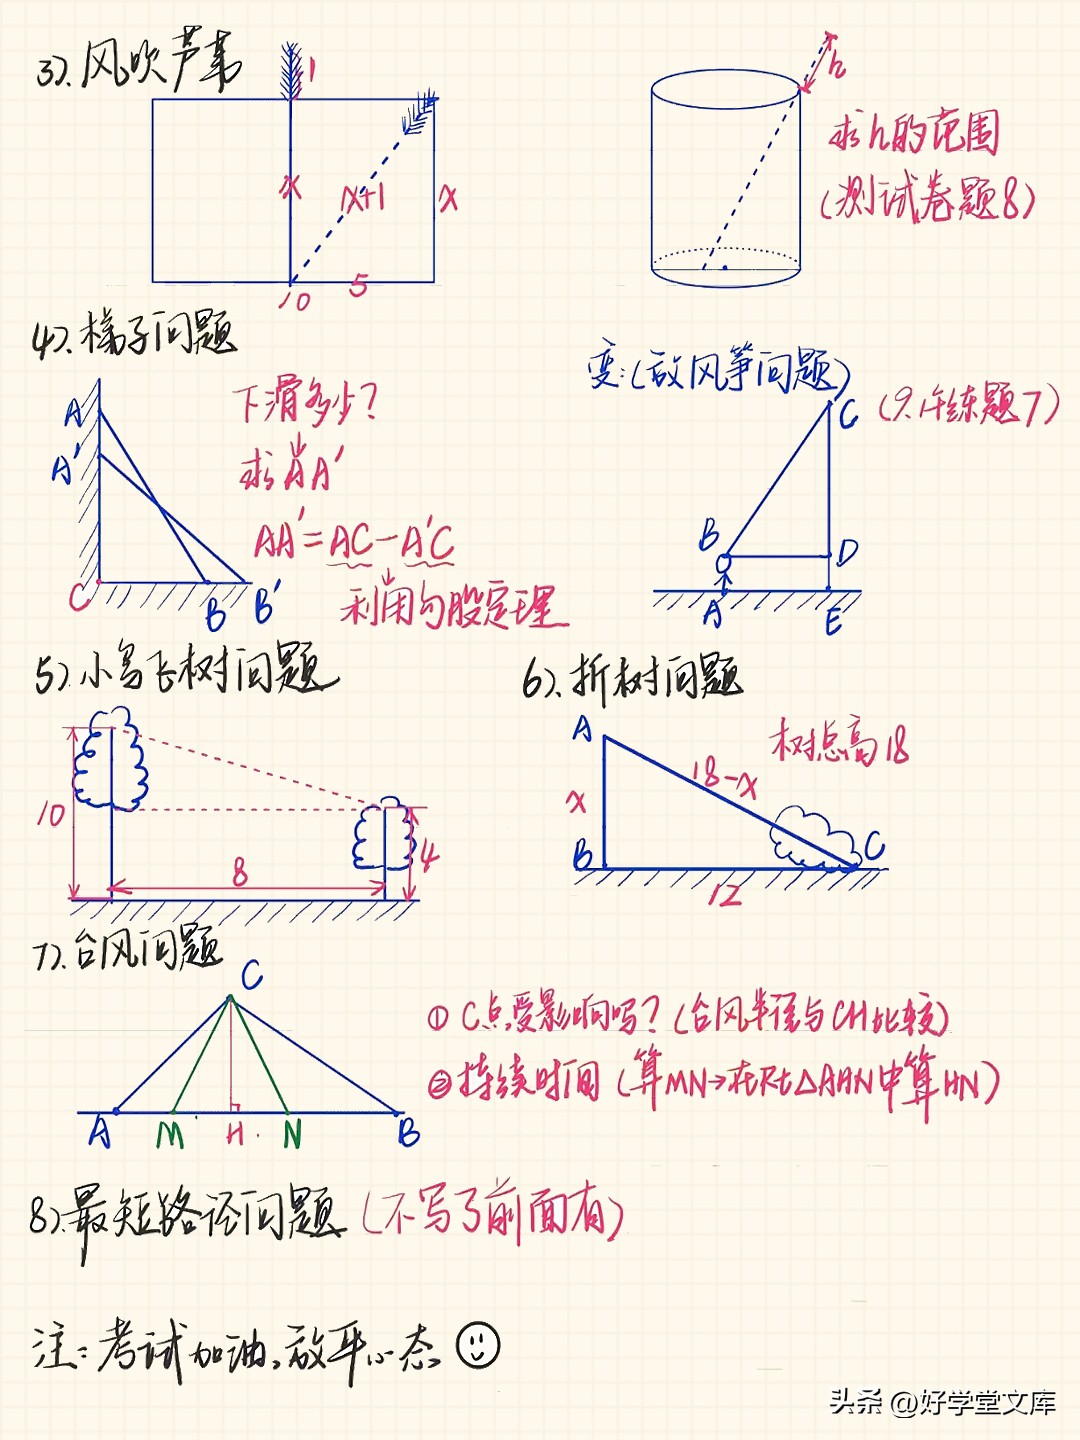 3).风吹芦苇
1
h
x
x+1
x
求h的范围
(测试卷题8)
10
5
4).梯子问题
变:(放风筝问题)
A
下滑多少?
C
(9.1午练题7)
A'
求AA'
AA'=AC-A'C
B
D
C
B
B'
利用勾股定理
A
E
5).小鸟飞树问题
6).折树问题
A
树总高18
18-x
10
x
4
B
C
8
12
7).台风问题
C
①C点受影响吗?(台风半径与CH比较)
②持续时间(算MN→在Rt△AHN中算HN)
A
M
H
N
B
8).最短路径问题(不写了前面有)
注:考试加油,放平心态
头条 @好学堂文库